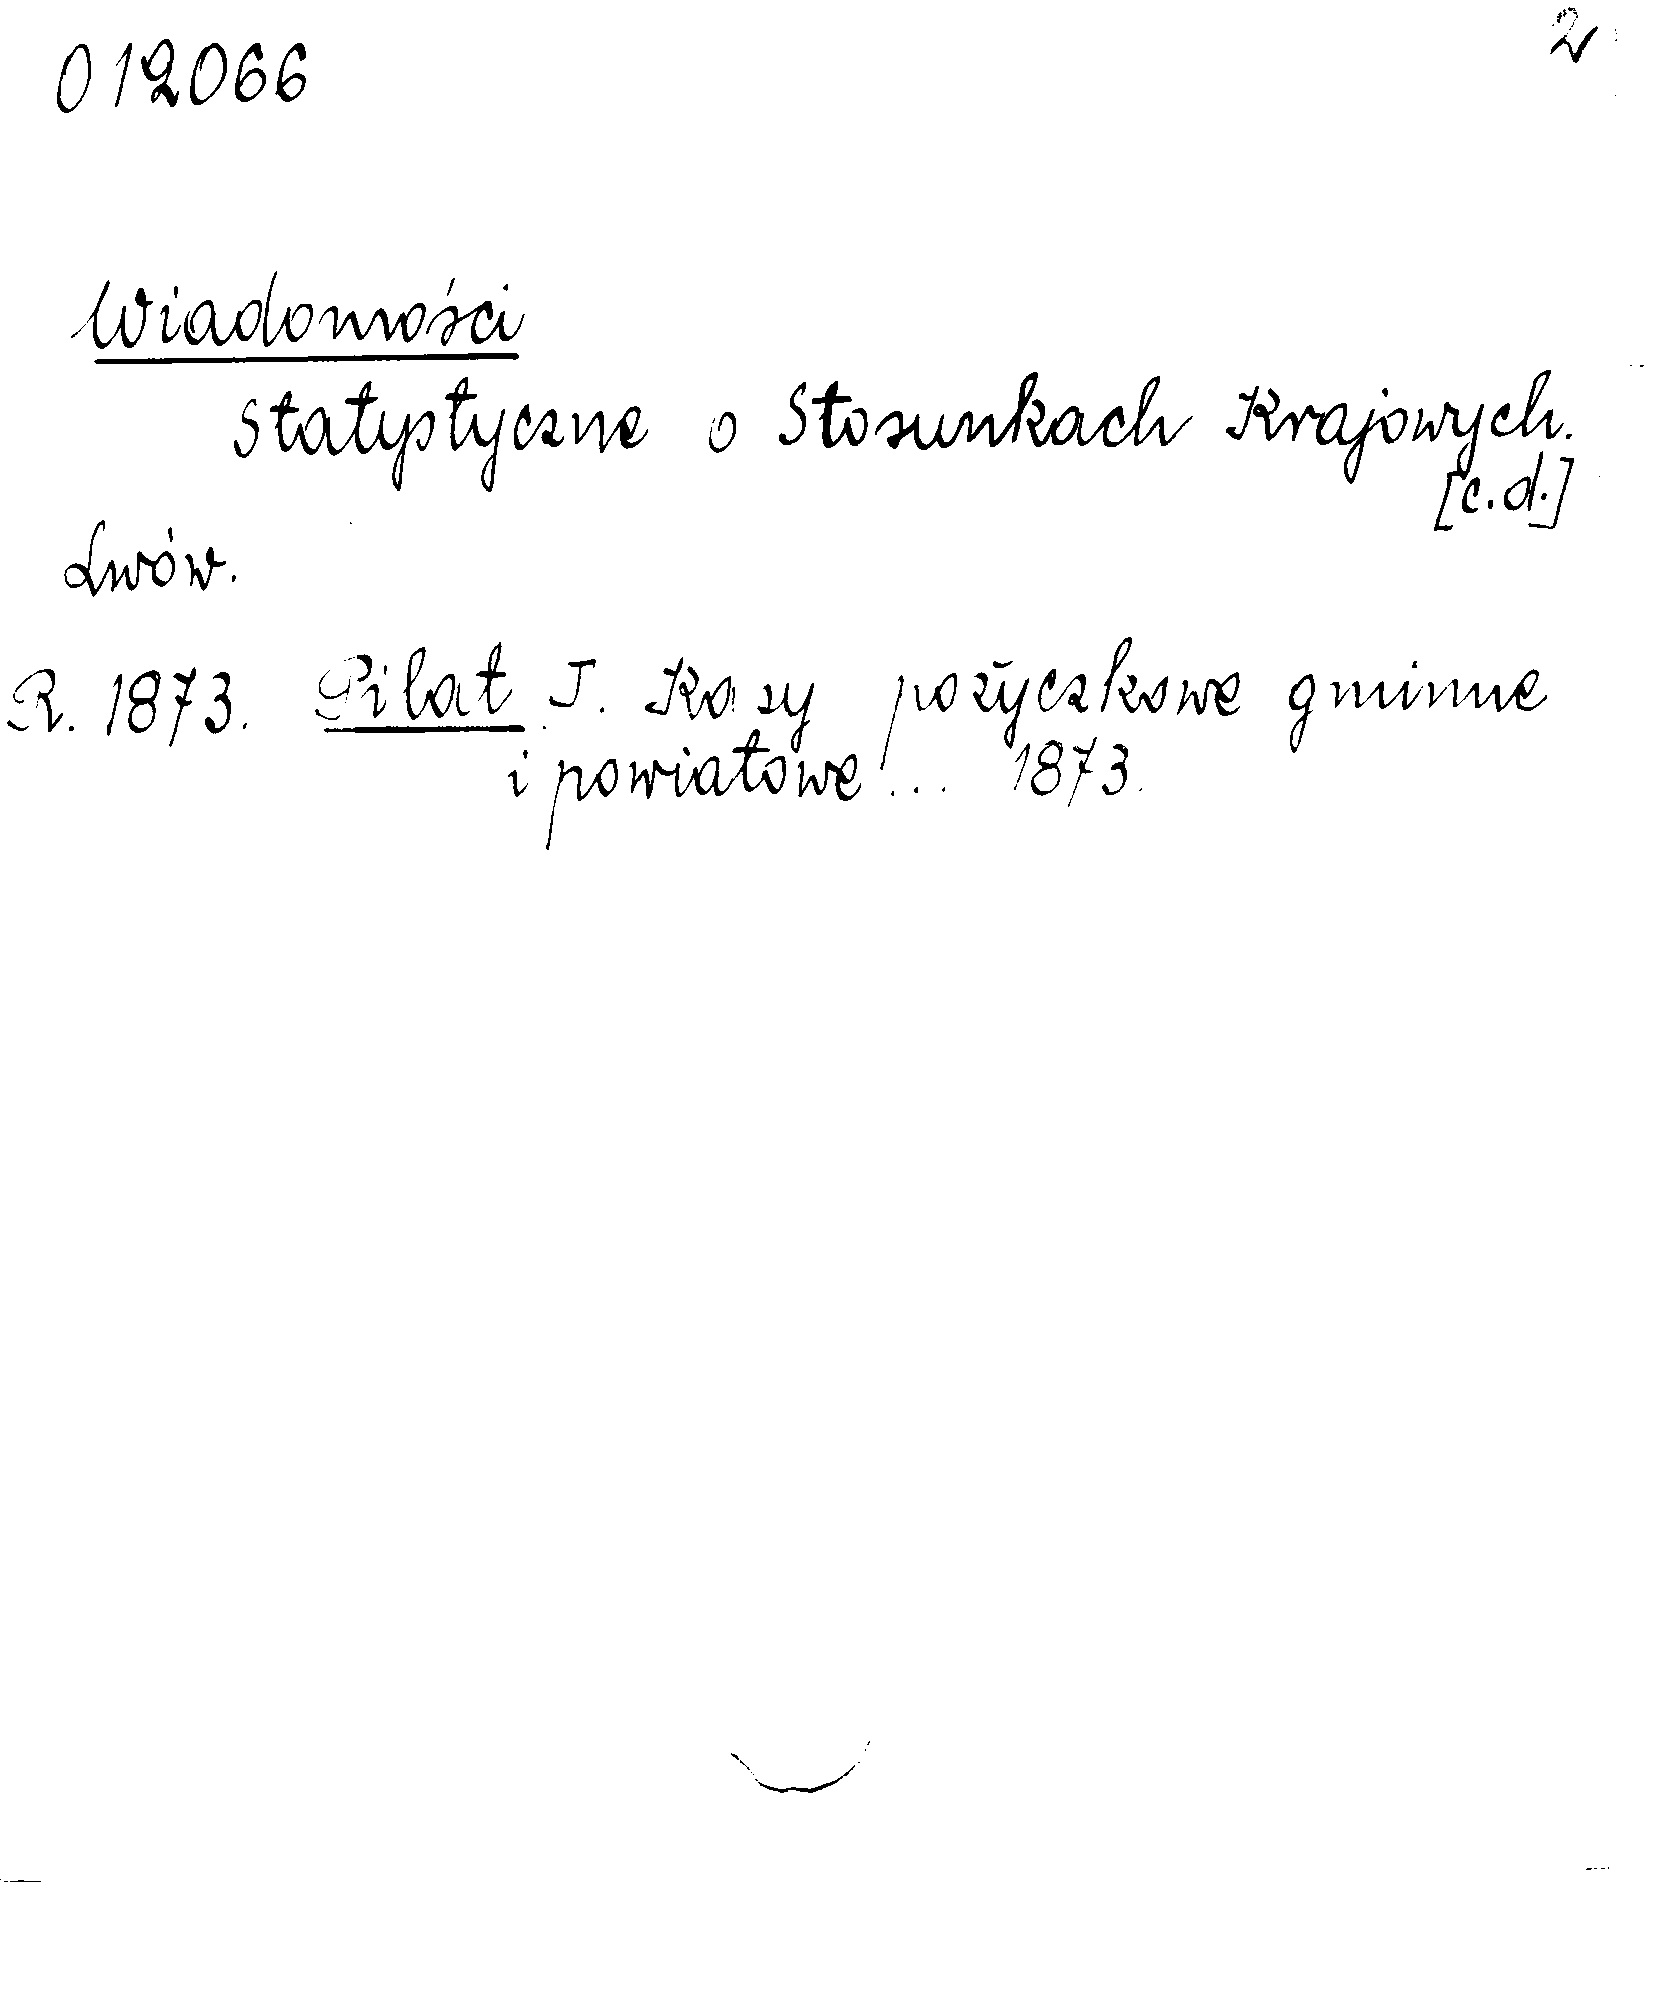 012066
2
Wiadomości
Statystyczne o Stosunkach Krajowych.
[c.d.]
Lwów.
R. 1873. Pilat T. Kasy pożyczkowe gminne
i powiatowe... 1873.